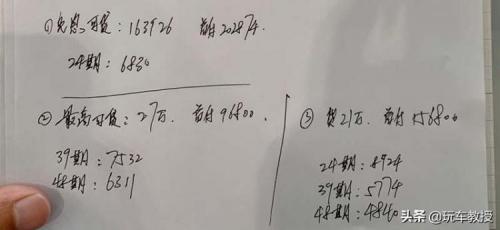 ①免息可贷:163926 首付202874.
24期:6830
②最高可贷:27万. 首付96800.
39期:7532
48期:6311
③贷21万. 首付156800
24期:8924
39期:5774
48期:4840
头条 @玩车教授